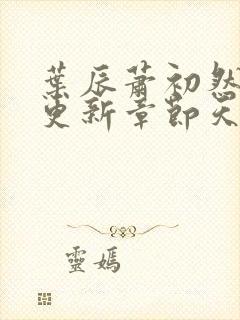 葉辰蕭初然
更新章節天
靈媽